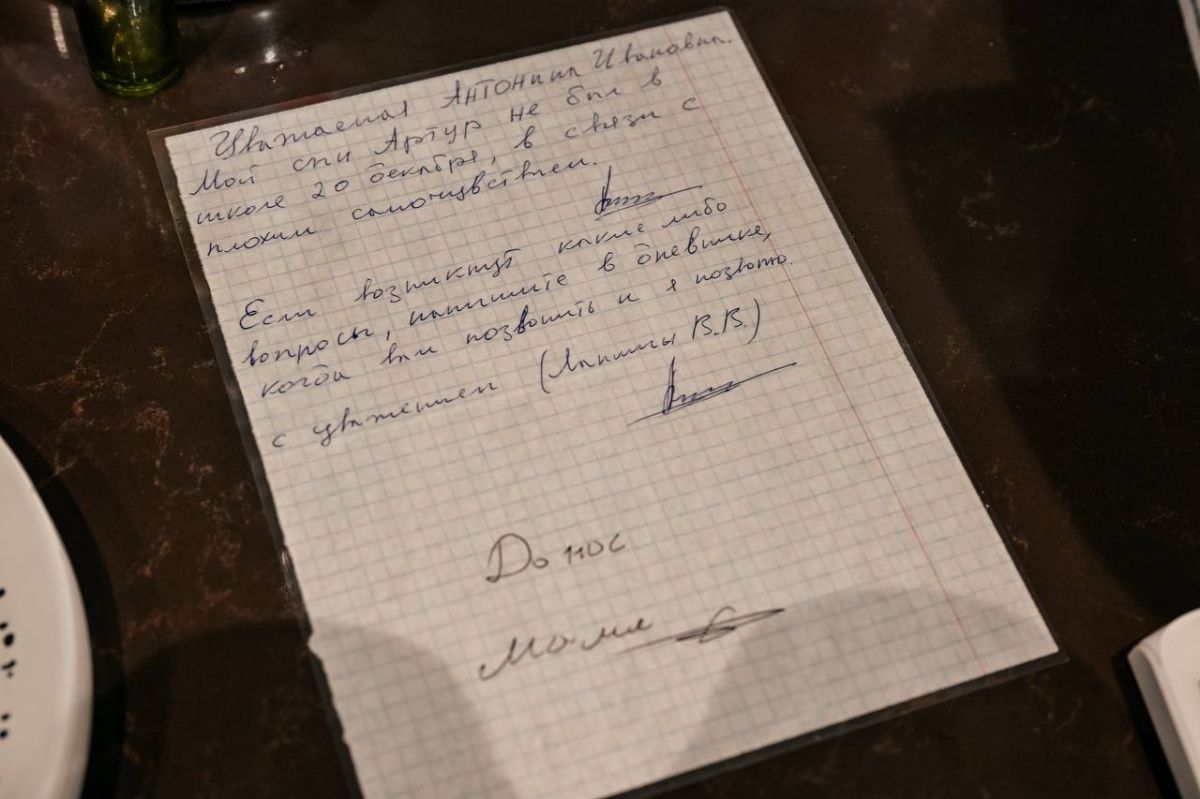 Уважаемая Антонина Ивановна.
Мой сын Артур не был в
школе 20 декабря, в связи с
плохим самочувствием.
Если возникнут какие либо
вопросы, напишите в дневнике,
когда вам позвонить и я позвоню.
с уважением (Лапшины В.В.)
Донос
Мамы